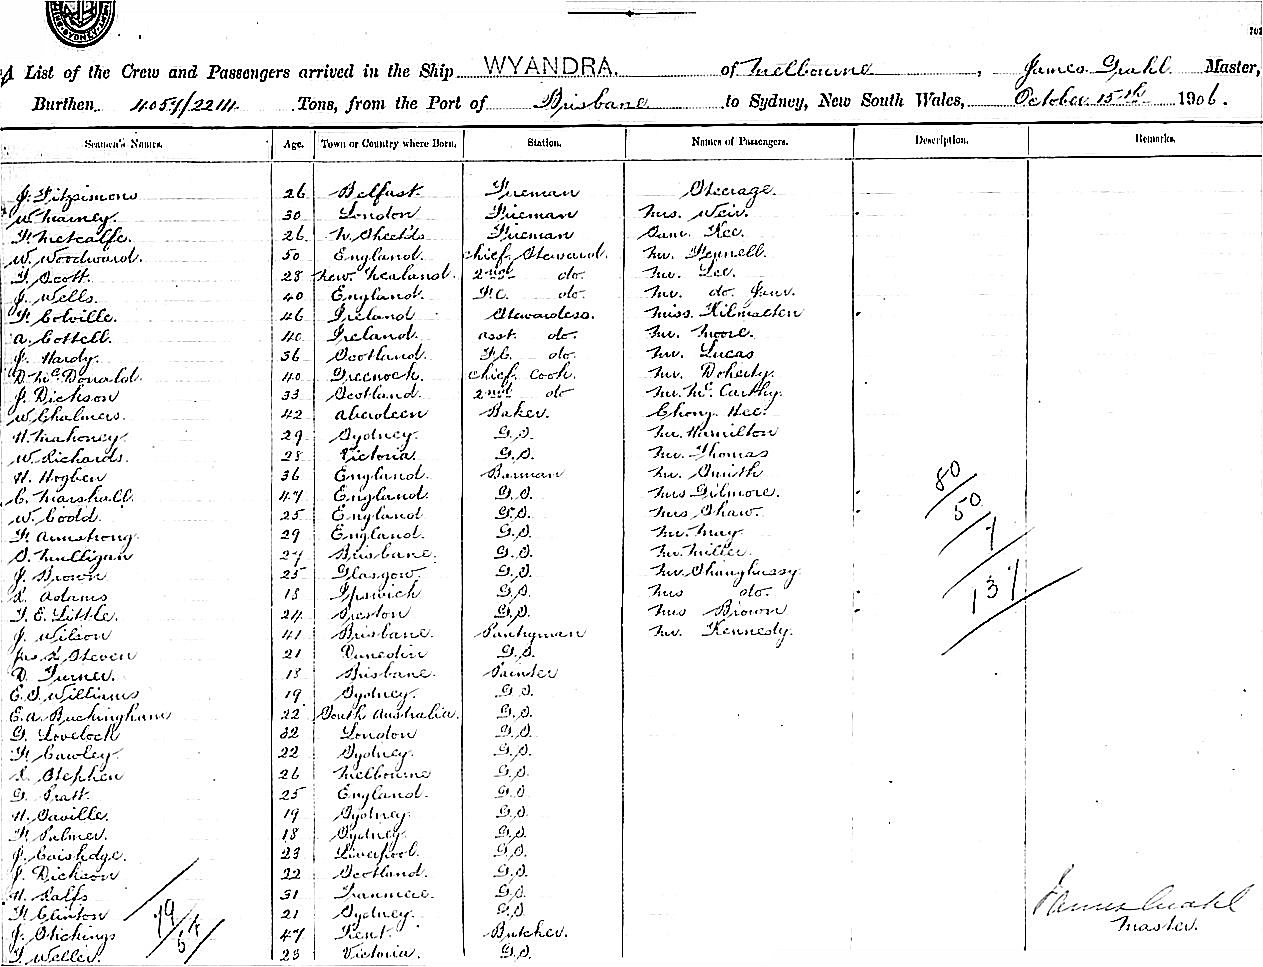 A List of the Crew and Passengers arrived in the Ship WYANDRA. of Melbourne, James Grahl Master,
Burthen 4057/2211 Tons, from the Port of Brisbane to Sydney, New South Wales, October 15th 1906.
Seamen's Names. Age. Town or Country where Born. Station. Names of Passengers. Description. Remarks.
J. Fitzsimons 26 Belfast Fireman Steerage
W. 30 London Fireman Mrs. Weir.
F. Metcalfe. 26 N. Shields Fireman Sam. Kee.
W. Woodward. 50 England. Chief Steward. Mr. Fennell.
F. Scott. 28 New Zealand. 2nd do. Mr. Lee.
J. Wells. 40 England. F.C. do. Mr. do. Junr.
F. Colville. 46 Ireland Stewardess. Miss. Kilmarten
A. Cottell. 40 Ireland. asst. do. Mr. Moore.
J. Hardy. 36 Scotland. F.C. do. Mr. Lucas
D. McDonald. 40 Greenock. Chief Cook. Mr. Doherty.
J. Dickson 33 Scotland. 2nd do Mr. McCarthy.
W. Chalmers. 42 Aberdeen Baker. Chong Hee.
H. Mahoney. 29 Sydney. G.S. Mr. Hamilton
W. Richards. 28 Victoria G.S. Mr. Thomas
H. Hogben 36 England. Barman Mr. Smith
C. Marshall. 47 England. G.S. Mrs Gilmore.
W. Codd. 25 England G.S. Mrs Shaw.
F. Armstrong. 29 England. G.S. Mr. May.
S. Mulligan 27 Brisbane. G.S. Mr. Miller.
J. Brown 25 Glasgow. G.S. Mr. Shaughnssy
Adams 18 Ipswich G.S. Mrs do.
F. E. Little. 24 Preston G.S. Mrs Brown
J. Wilson 41 Brisbane. Pantryman Mr. Kennedy.
Jas. Steven 21 Dunedin G.S.
D. Turner. 18 Brisbane. Painter
E. S. Williams 19 Sydney. G.S.
E. A. Buckingham 22 South Australia. G.S.
G. Lovelock 32 London G.S.
F. Cawley. 22 Sydney. G.S.
Stephen 26 Melbourne G.S.
G. Pratt. 25 England. G.S.
H. Saville. 19 Sydney. G.S.
F. Palmer. 18 Sydney. G.S.
J. 23 Liverpool. G.S.
J. Dickson 22 Scotland. G.S.
H. Ralfs 31 Tranmere. G.S.
F. Clinton 21 Sydney. G.S.
J. Stichings 47 Kent. Butcher.
F. Weller. 23 Victoria. G.S.
80
50
7
137
79
57
James Grahl
Master.